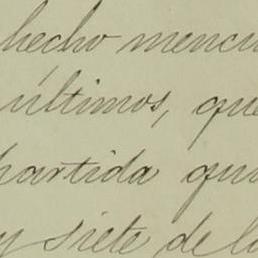 hecho mencio
últimos, que
partida que
y siete de lo